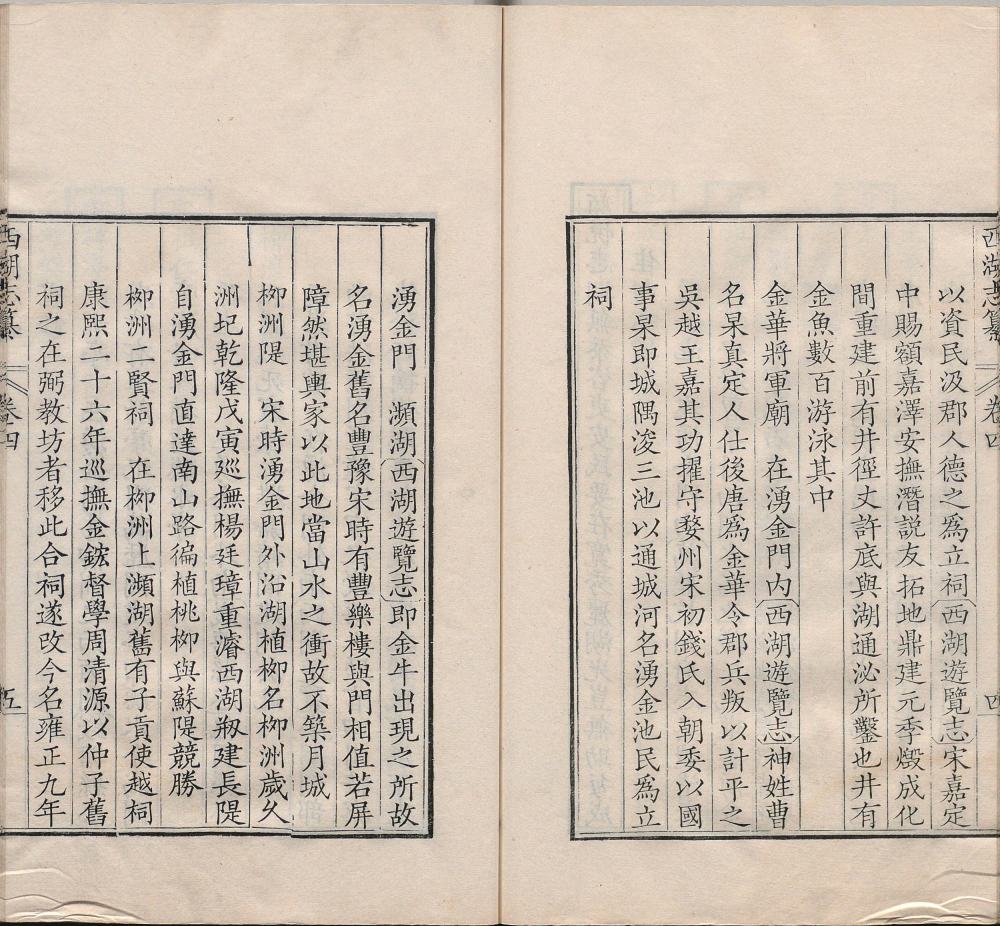 西湖志纂
卷四
四
以資民汲郡人德之爲立祠西湖遊覽志宋嘉定
中賜額嘉澤安撫潛説友拓地鼎建元季燬成化
間重建前有井徑丈許底與湖通泌所鑿也井有
金魚數百游泳其中
金華將軍廟　在湧金門內西湖遊覽志神姓曹
名杲真定人仕後唐爲金華令郡兵叛以計平之
吳越王嘉其功擢守婺州宋初錢氏入朝委以國
事杲即城隅浚三池以通城河名湧金池民爲立
祠
湧金門　瀕湖西湖遊覽志即金牛出現之所故
名湧金舊名豐豫宋時有豐樂樓與門相值若屏
障然堪輿家以此地當山水之衝故不築月城
柳洲隄　宋時湧金門外沿湖植柳名柳洲歲久
洲圮乾隆戊寅廵撫楊廷璋重濬西湖剙建長隄
自湧金門直達南山路徧植桃柳與蘇隄競勝
柳洲二賢祠　在柳洲上瀕湖舊有子貢使越祠
康熙二十六年巡撫金鋐督學周清源以仲子舊
祠之在弼教坊者移此合祠遂改今名雍正九年
西湖志纂
卷四
五